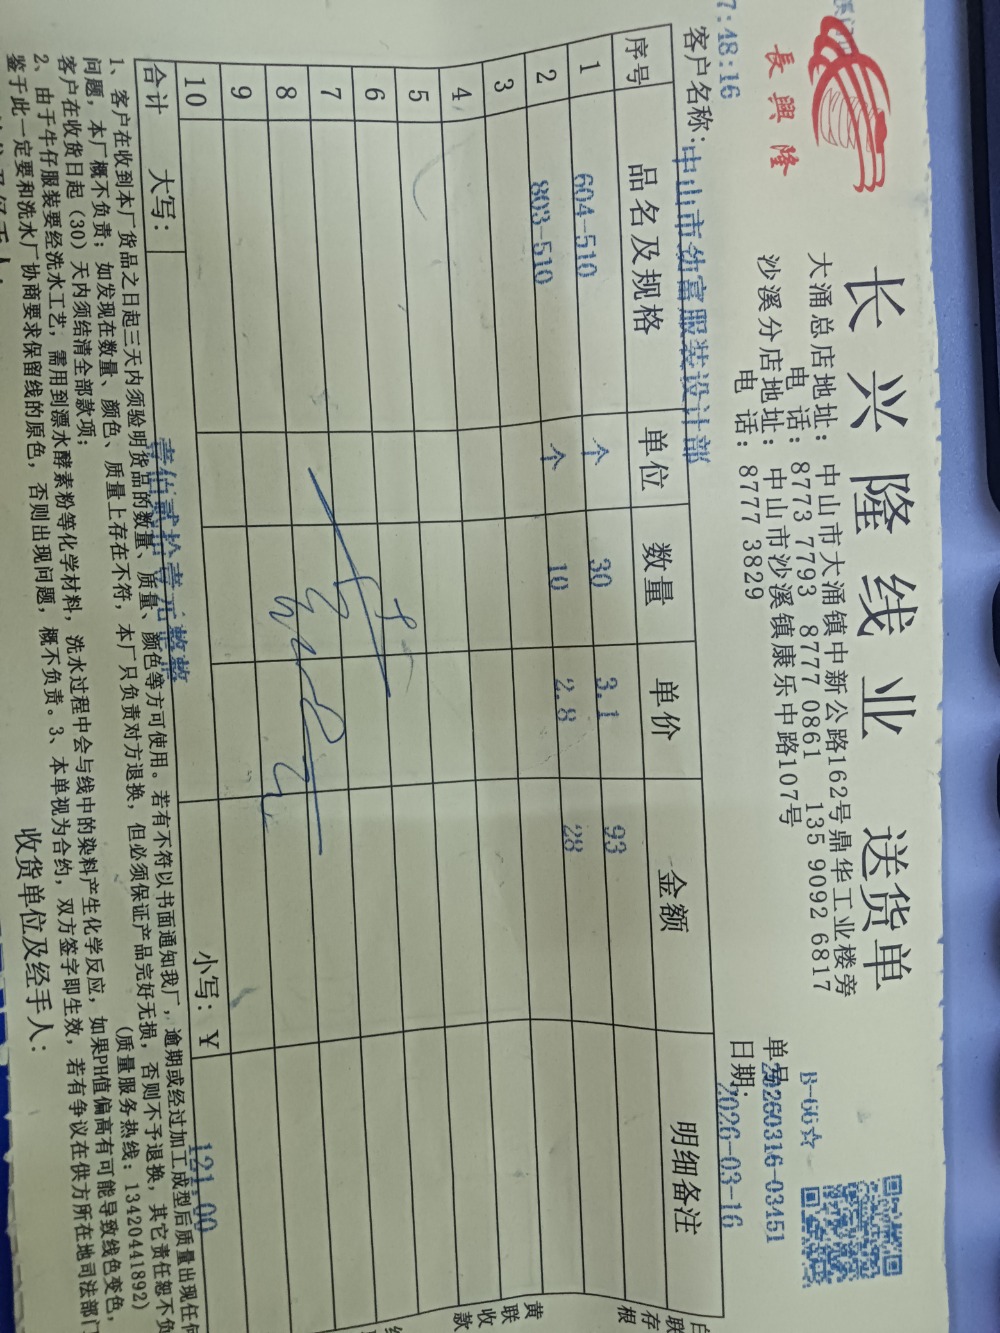 長興隆
长兴隆线业 送货单
大涌总店地址：中山市大涌镇中新公路162号鼎华工业楼旁
电 话：8773 7793 8777 0861 135 9092 6817
沙溪分店地址：中山市沙溪镇康乐中路107号
电 话：8777 3829
B-66☆
单号 20260316-03451
7:48:16
日期：2026-03-16
客户名称：中山市劲富服装设计部
序号 品名及规格 单位 数量 单价 金额 明细备注
1 604-510 个 30 3.1 93
2 803-510 个 10 2.8 28
3
4
5
6
7
8
9
10
合计 大写：壹佰贰拾壹元整 小写：¥ 121.00
1、客户在收到本厂货品之日起三天内须验明货品的数量、质量、颜色等方可使用。若有不符以书面通知我厂，逾期或经过加工成型后质量出现任何
问题，本厂概不负责；如发现在数量、颜色、质量上存在不符，本厂只负责对方退换，但必须保证产品完好无损，否则不予退换，其它责任恕不负
客户在收货日起（30）天内须结清全部款项； （质量服务热线：13420441892）
2、由于牛仔服装要经洗水工艺，需用到漂水酵素粉等化学材料，洗水过程中会与线中的染料产生化学反应，如果PH值偏高有可能导致线色变色，
鉴于此一定要和洗水厂协商要求保留线的原色，否则出现问题，概不负责。3、本单视为合约，双方签字即生效，若有争议在供方所在地司法部门
收货单位及经手人：
白联存根
黄联收款